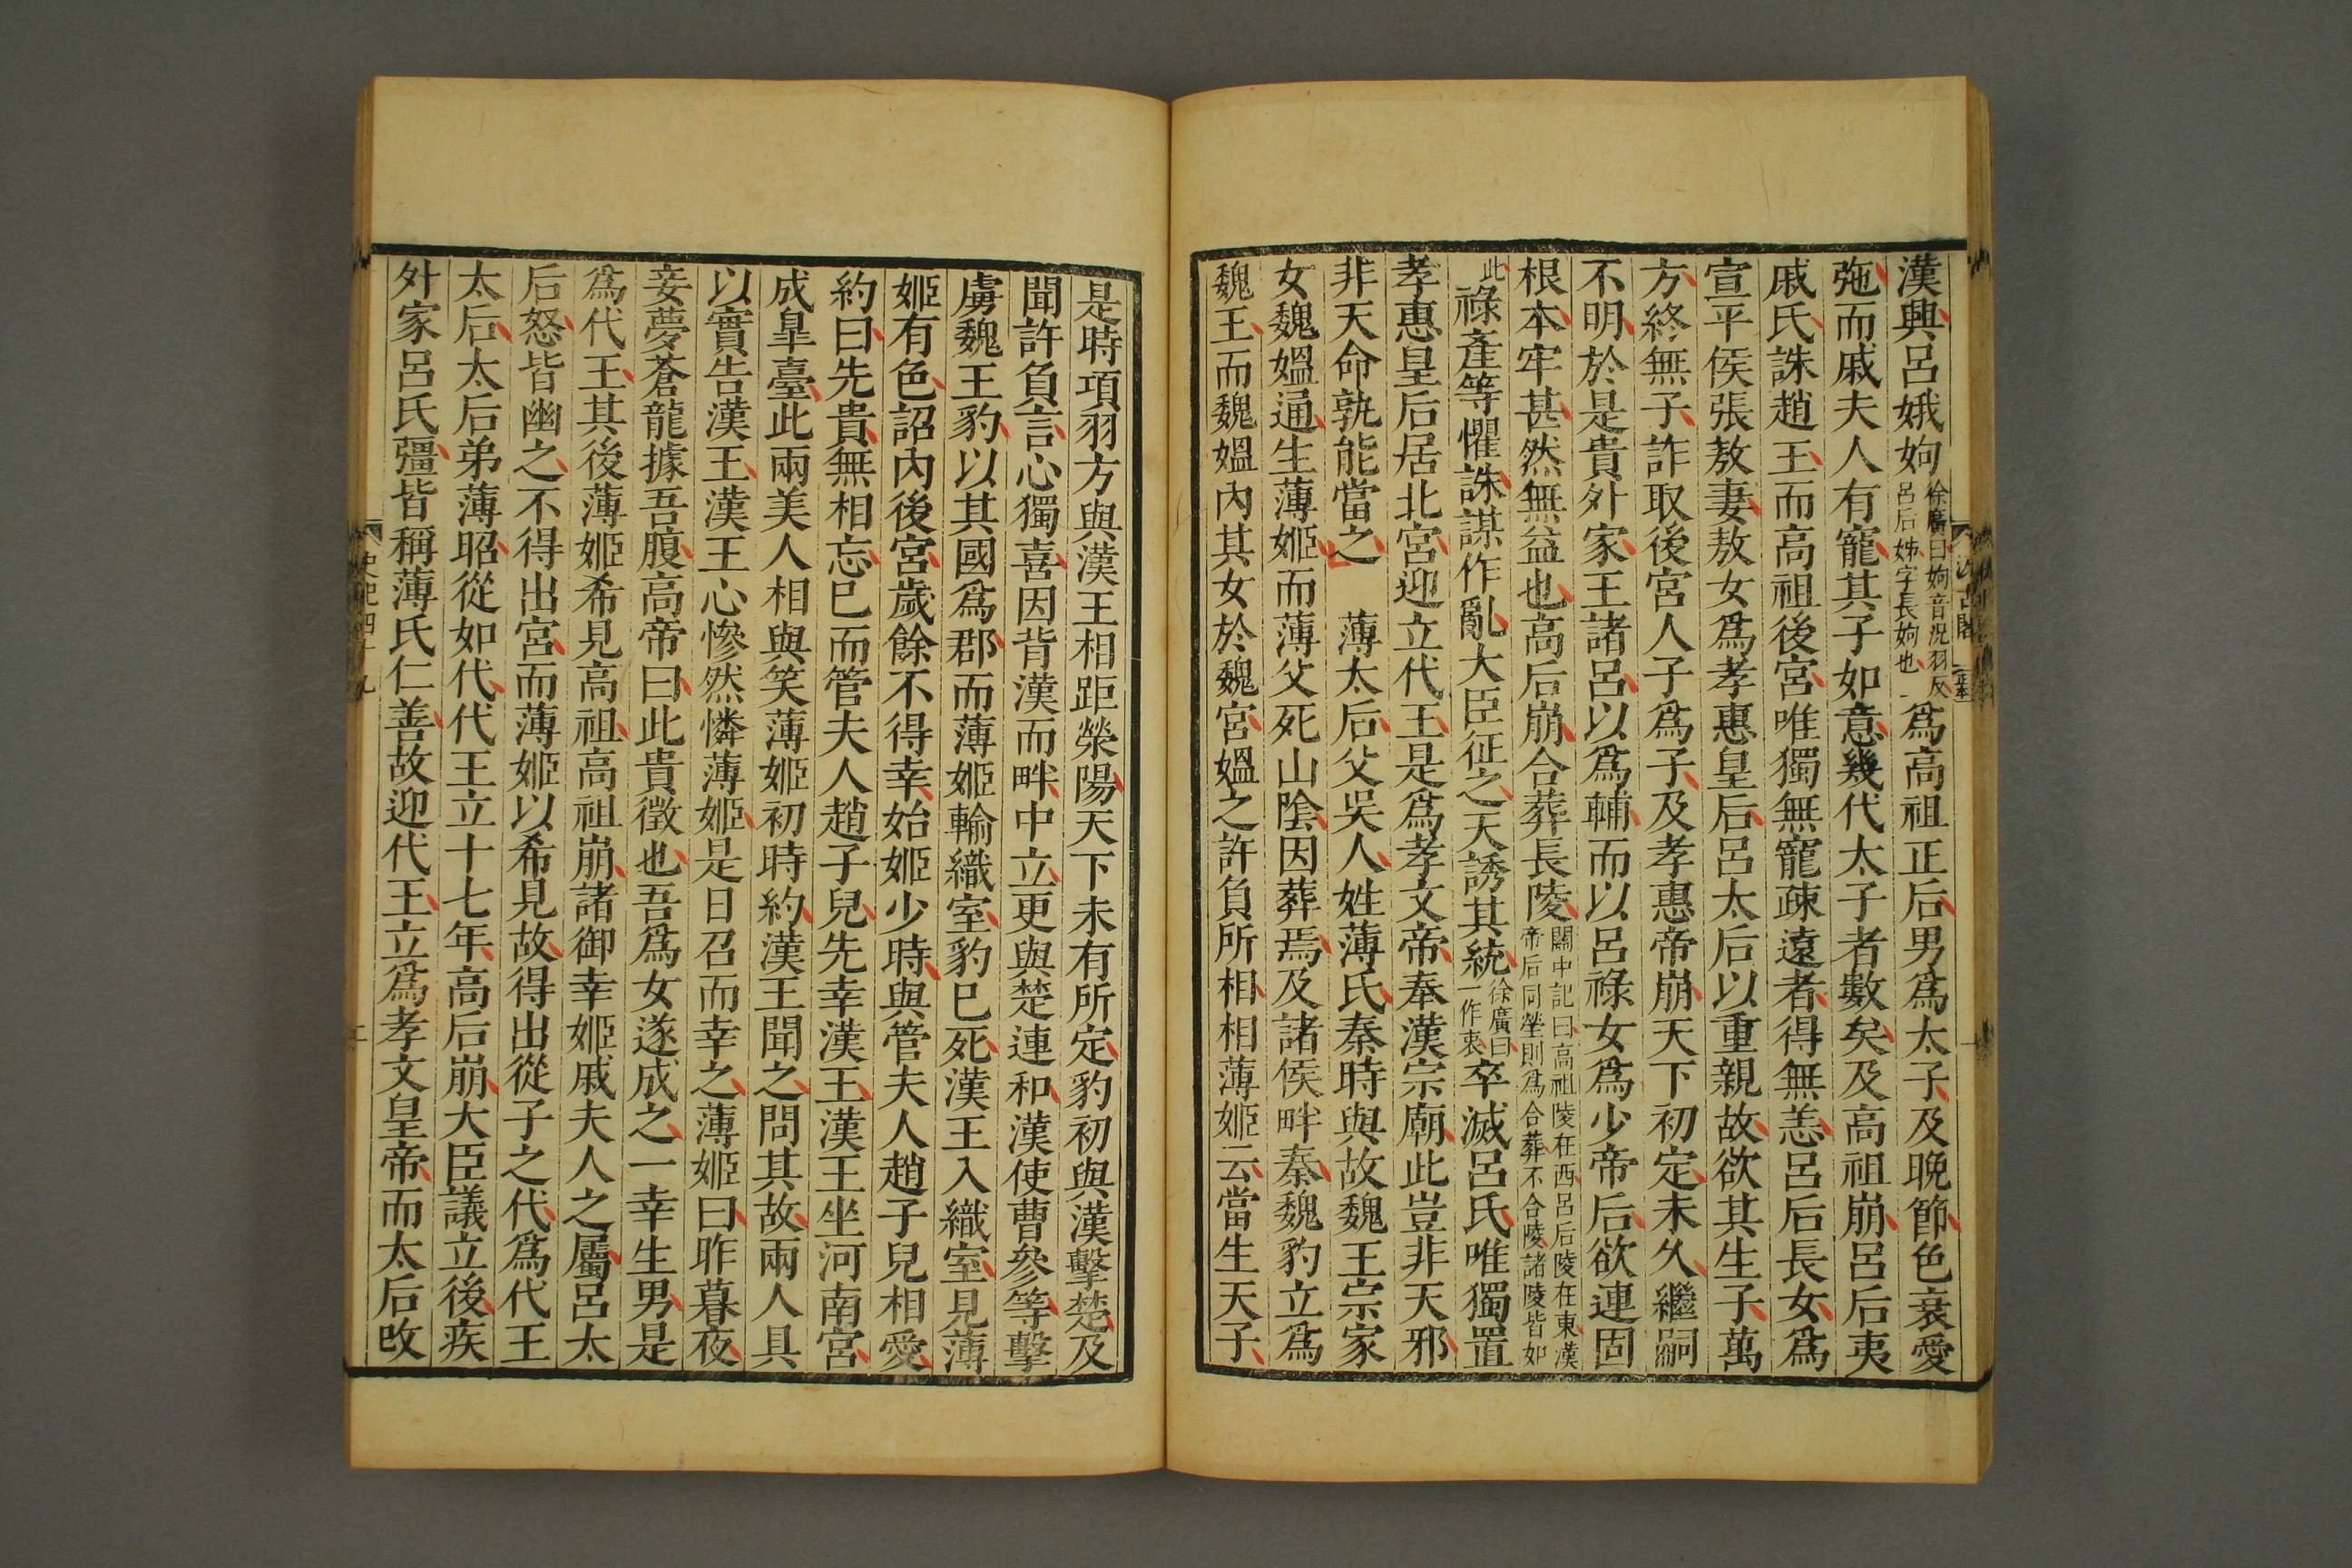 漢興呂娥姁徐廣曰姁音況羽反呂后姊字長姁也爲高祖正后男爲太子及晚節色衰愛
弛而戚夫人有寵其子如意幾代太子者數矣及高祖崩呂后夷
戚氏誅趙王而高祖後宮唯獨無寵疎遠者得無恙呂后長女爲
宣平侯張敖妻敖女爲孝惠皇后呂太后以重親故欲其生子萬
方終無子詐取後宮人子爲子及孝惠帝崩天下初定未久繼嗣
不明於是貴外家王諸呂以爲輔而以呂祿女爲少帝后欲連固
根本牢甚然無益也高后崩合葬長陵關中記曰高祖陵在西呂后陵在東漢帝后同塋則爲合葬不合陵諸陵皆如
此祿產等懼誅謀作亂大臣征之天誘其統徐廣曰一作衷卒滅呂氏唯獨置
孝惠皇后居北宮迎立代王是爲孝文帝奉漢宗廟此豈非天邪
非天命孰能當之　薄太后父吳人姓薄氏秦時與故魏王宗家
女魏媼通生薄姬而薄父死山陰因葬焉及諸侯畔秦魏豹立爲
魏王而魏媼內其女於魏宮媼之許負所相相薄姬云當生天子
是時項羽方與漢王相距滎陽天下未有所定豹初與漢擊楚及
聞許負言心獨喜因背漢而畔中立更與楚連和漢使曹參等擊
虜魏王豹以其國爲郡而薄姬輸織室豹已死漢王入織室見薄
姬有色詔內後宮歲餘不得幸始姬少時與管夫人趙子兒相愛
約曰先貴無相忘已而管夫人趙子兒先幸漢王漢王坐河南宮
成皐臺此兩美人相與笑薄姬初時約漢王聞之問其故兩人具
以實告漢王漢王心慘然憐薄姬是日召而幸之薄姬曰昨暮夜
妾夢蒼龍據吾腹高帝曰此貴徵也吾爲女遂成之一幸生男是
爲代王其後薄姬希見高祖高祖崩諸御幸姬戚夫人之屬呂太
后怒皆幽之不得出宮而薄姬以希見故得出從子之代爲代王
太后太后弟薄昭從如代代王立十七年高后崩大臣議立後疾
外家呂氏彊皆稱薄氏仁善故迎代王立爲孝文皇帝而太后改
史記四十九